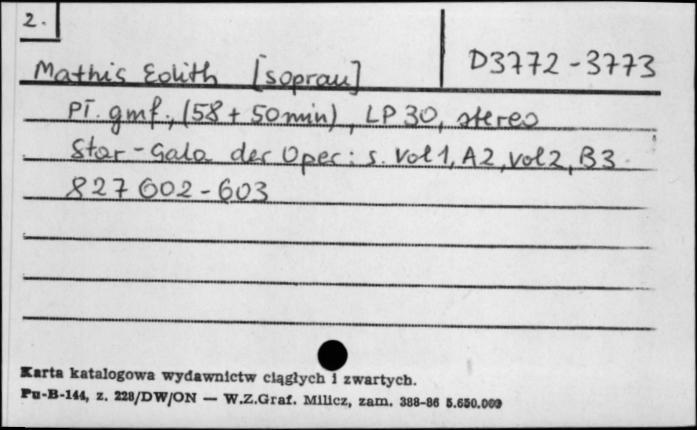 2.
D3772-3773
Mathis Edith [sopran]
Pł. gmf., (58 + 50min), LP 30, stereo
Star-Gala der Oper: s. vol 1, A2, vol 2, B3
827 602-603
Karta katalogowa wydawnictw ciągłych i zwartych.
Pu-B-144, z. 228/DW/ON — W.Z.Graf. Milicz, zam. 388-86 5.650.000